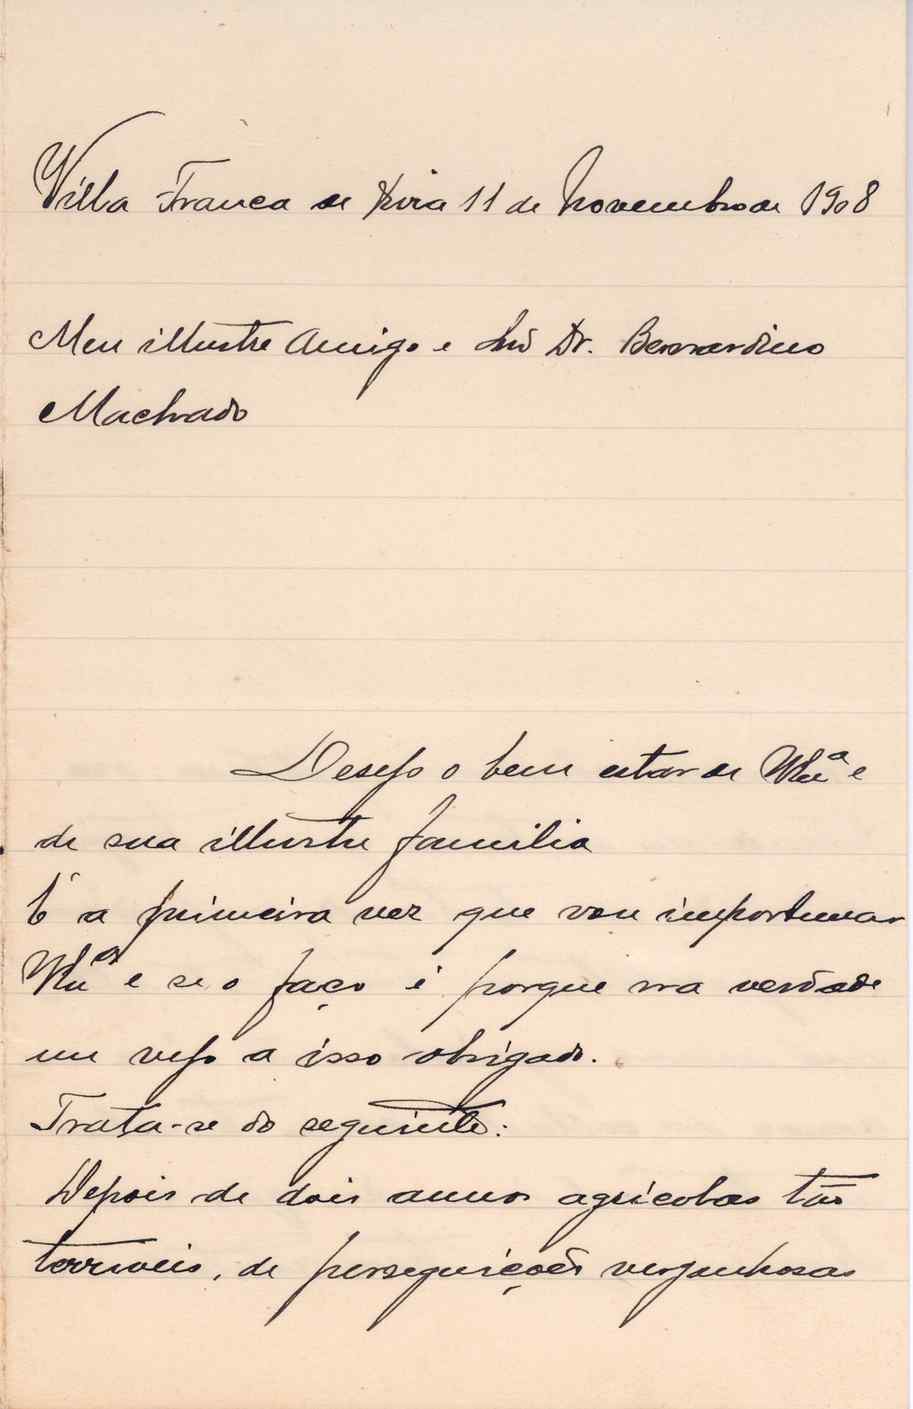 Villa Franca de Xira 11 de Novembro de 1908
Meu illustre Amigo e Snr Dr. Bernardino
Machado
Desejo o bem estar de V. Exª e
de sua illustre familia
É a primeira vez que vou importunar
V. Exª e se o faço é porque na verdade
me vejo a isso obrigado.
Trata-se do seguinte:
Depois de dois annos agricolas tão
terriveis, de perseguições vergonhosas